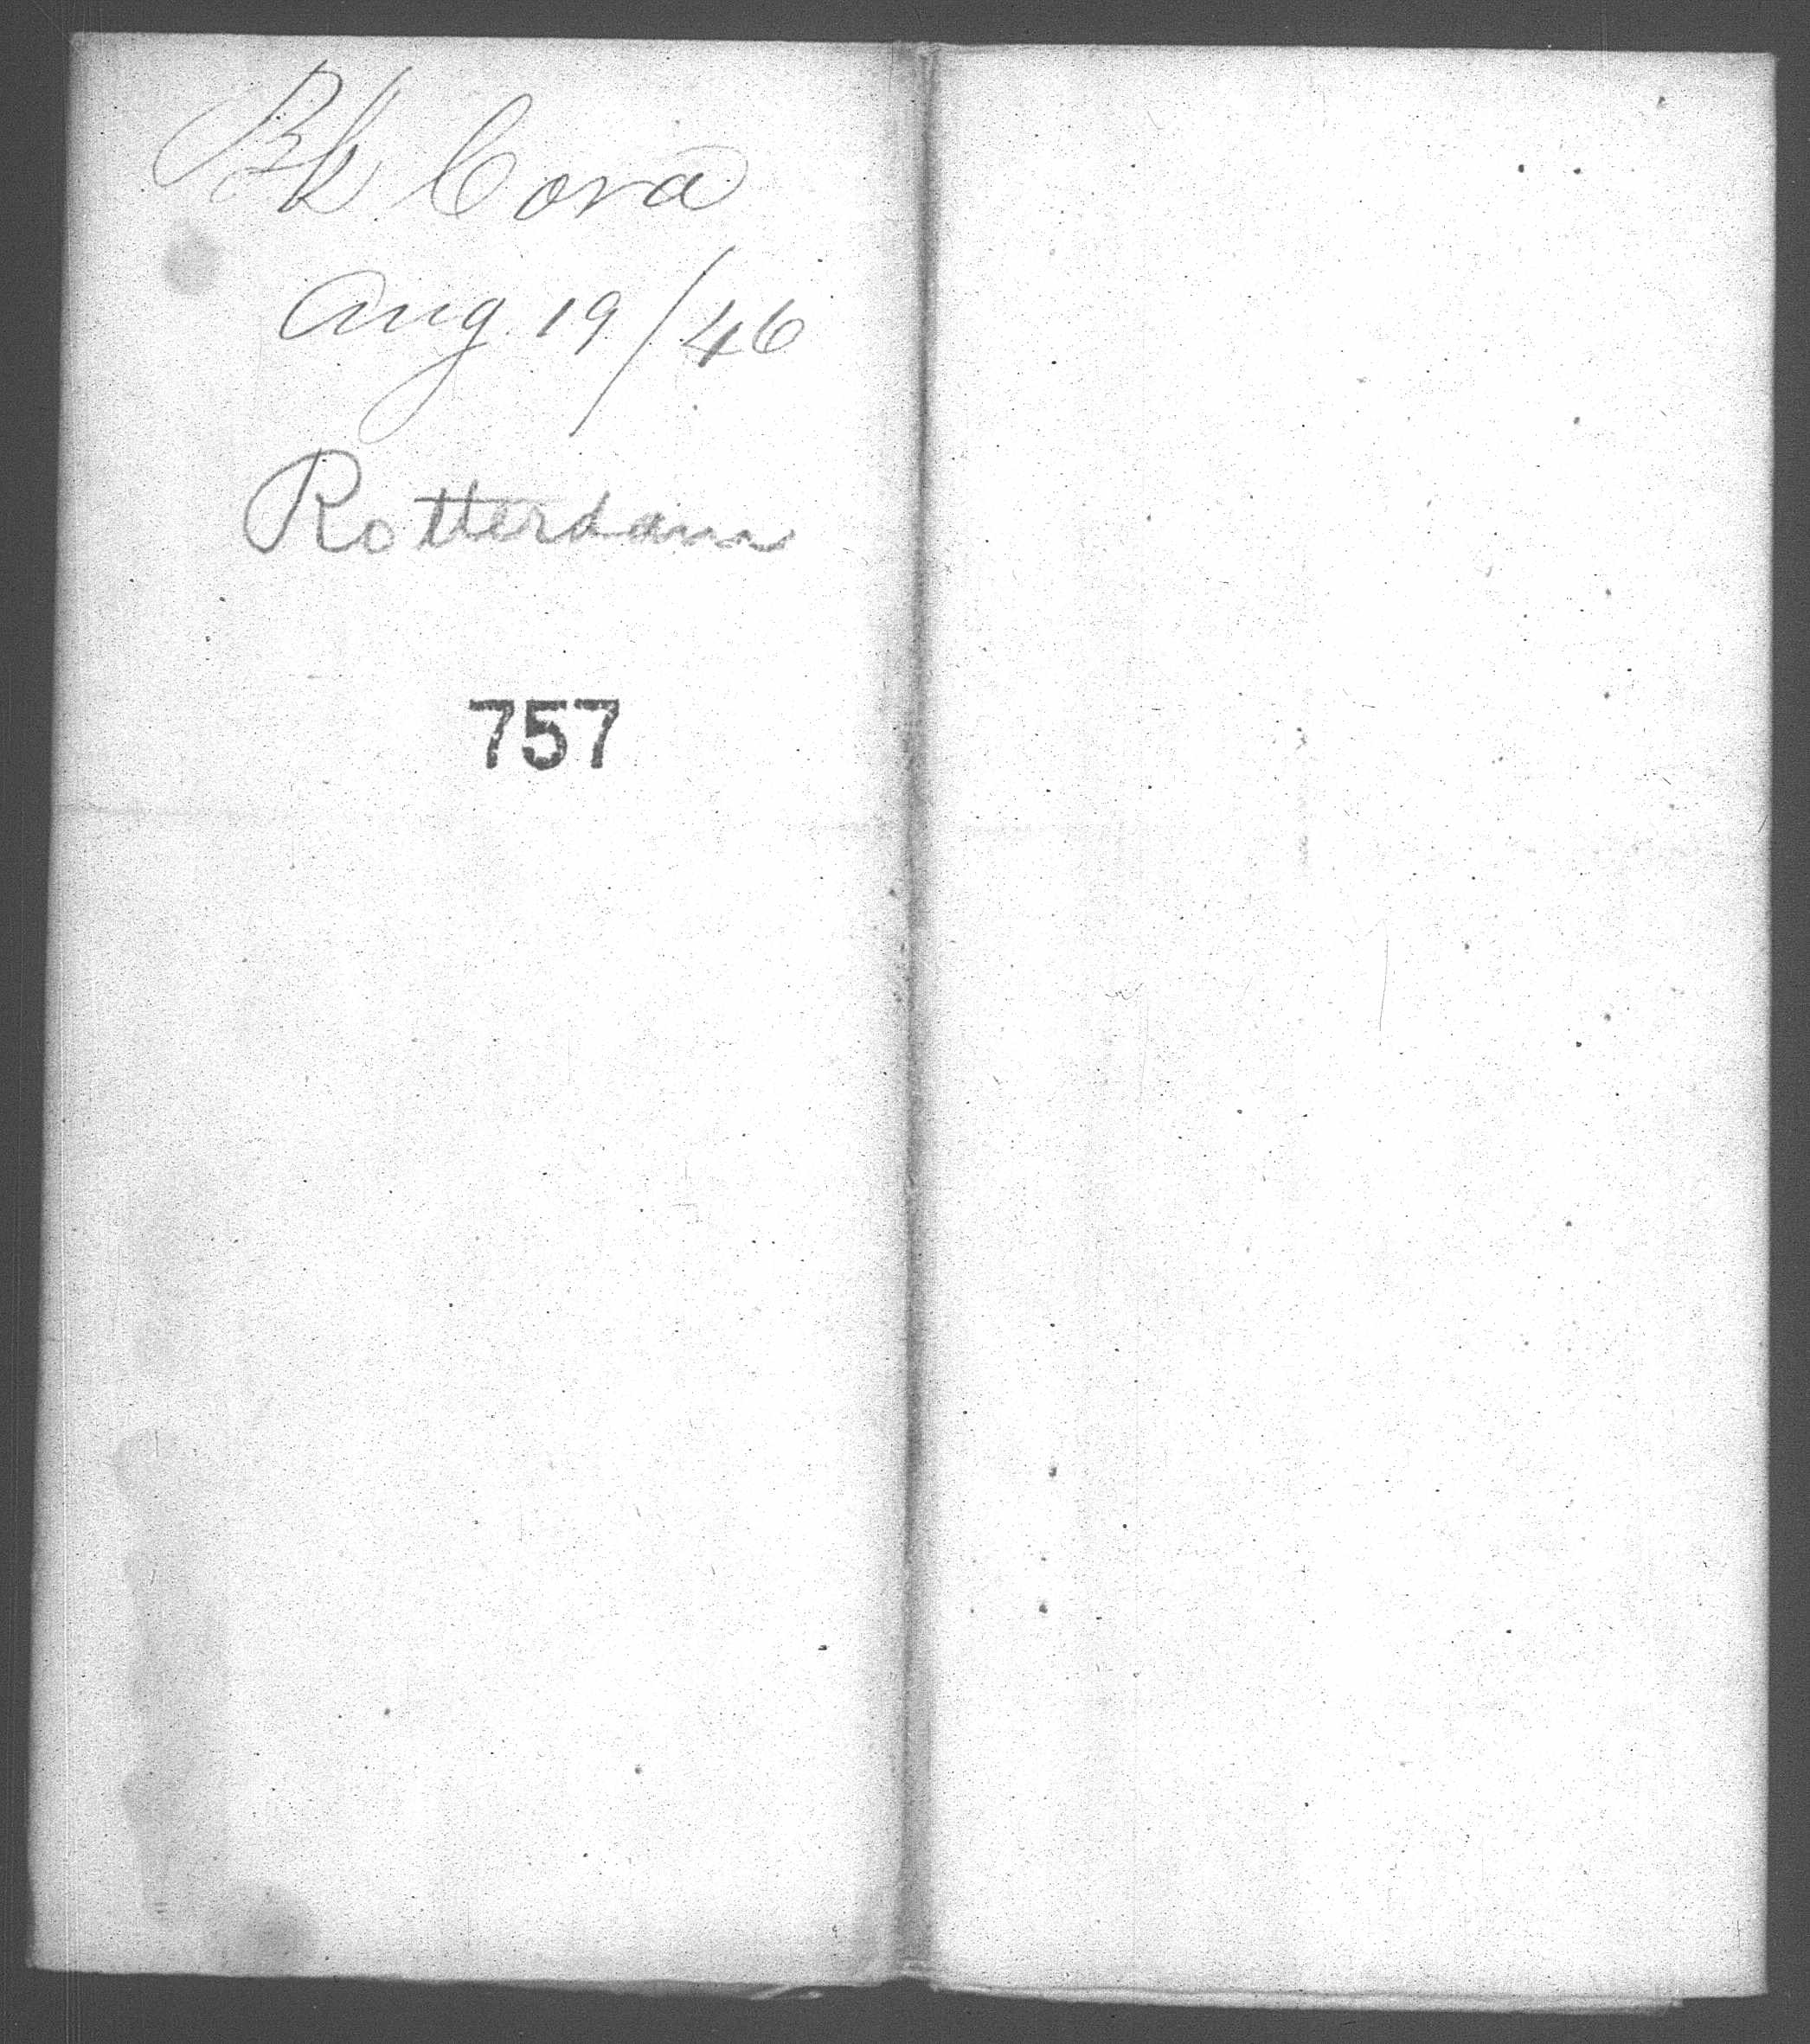 Bk Cora
Aug. 19/46
Rotterdam
757